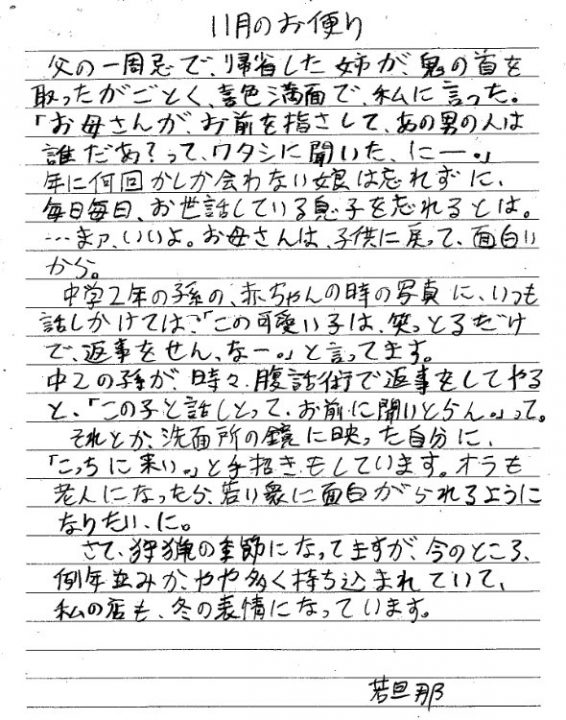 11月のお便り
父の一周忌で、帰省した姉が、鬼の首を
取ったがごとく、喜色満面で、私に言った。
「お母さんが、お前を指さして、あの男の人は
誰だあ？って、ワタシに聞いた、にー。」
年に何回かしか会わない娘は忘れずに、
毎日毎日、お世話している息子を忘れるとは。
…まァ、いいよ。お母さんは、子供に戻って、面白い
から。
中学2年の孫の、赤ちゃんの時の写真に、いつも
話しかけては、「この可愛い子は、笑っとるだけ
で、返事をせん、なー。」と言ってます。
中2の孫が、時々、腹話術で返事をしてやる
と、「この子と話しとって、お前に聞いとらん。」って。
それとか、洗面所の鏡に映った自分に、
「こっちに来い。」と手招きもしています。オラも
老人になったら、若い衆に面白がられるように
なりたい、に。
さて、狩猟の季節になってますが、今のところ、
例年並みか、やや多く持ち込まれていて、
私の店も、冬の表情になっています。
若旦那